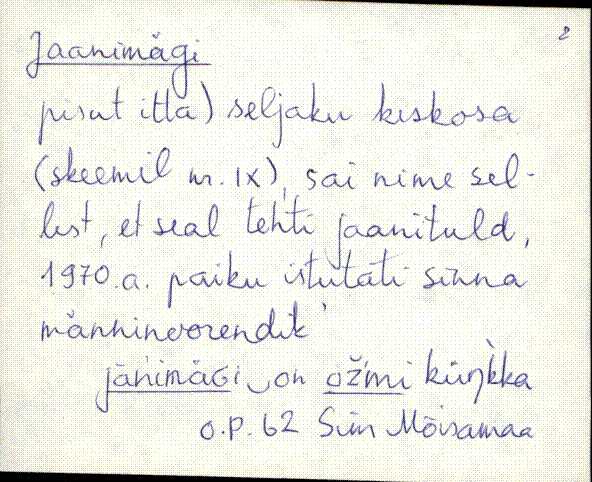 2
Jaanimägi
pisut itta) seljaku keskosa
(skeemil nr. IX), sai nime sel-
lest, et seal tehti jaanituld,
1970.a. paiku istutati sinna
männinoorendik
jäńimäGi on ožmi küŋ̀kka
O.P. 62 Siin Mõisamaa